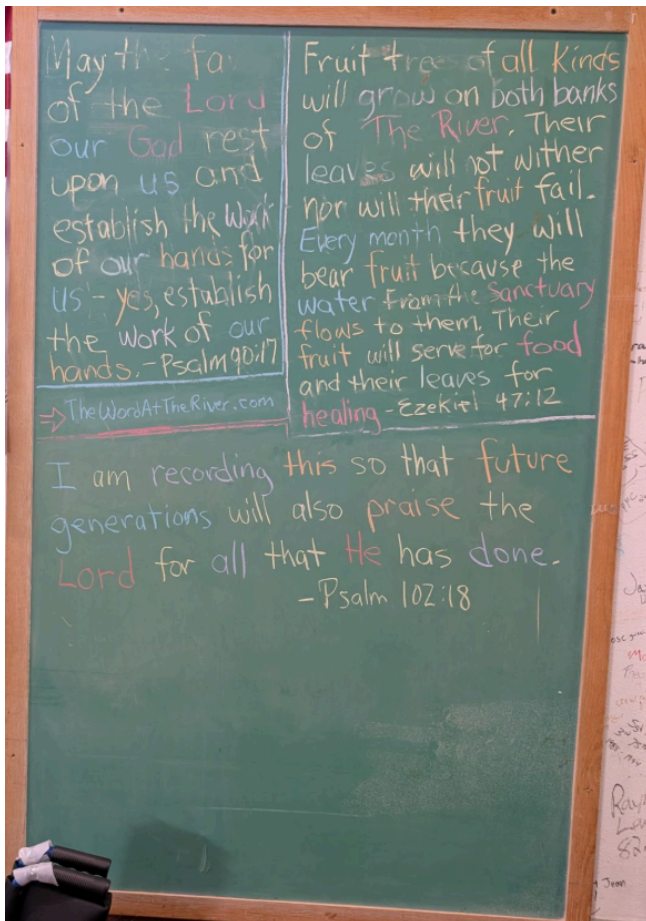 May the fa
of the Lord
our God rest
upon us and
establish the work
of our hands for
us - yes, establish
the work of our
hands. - Psalm 90:17
→ TheWordAtTheRiver.com
Fruit tree of all kinds
will grow on both banks
of The River. Their
leaves will not wither
nor will their fruit fail.
Every month they will
bear fruit because the
water From the Sanctuary
flows to them. Their
fruit will serve for food
and their leaves for
healing - Ezekiel 47:12
I am recording this so that future
generations will also praise the
Lord for all that He has done.
- Psalm 102:18
Jean